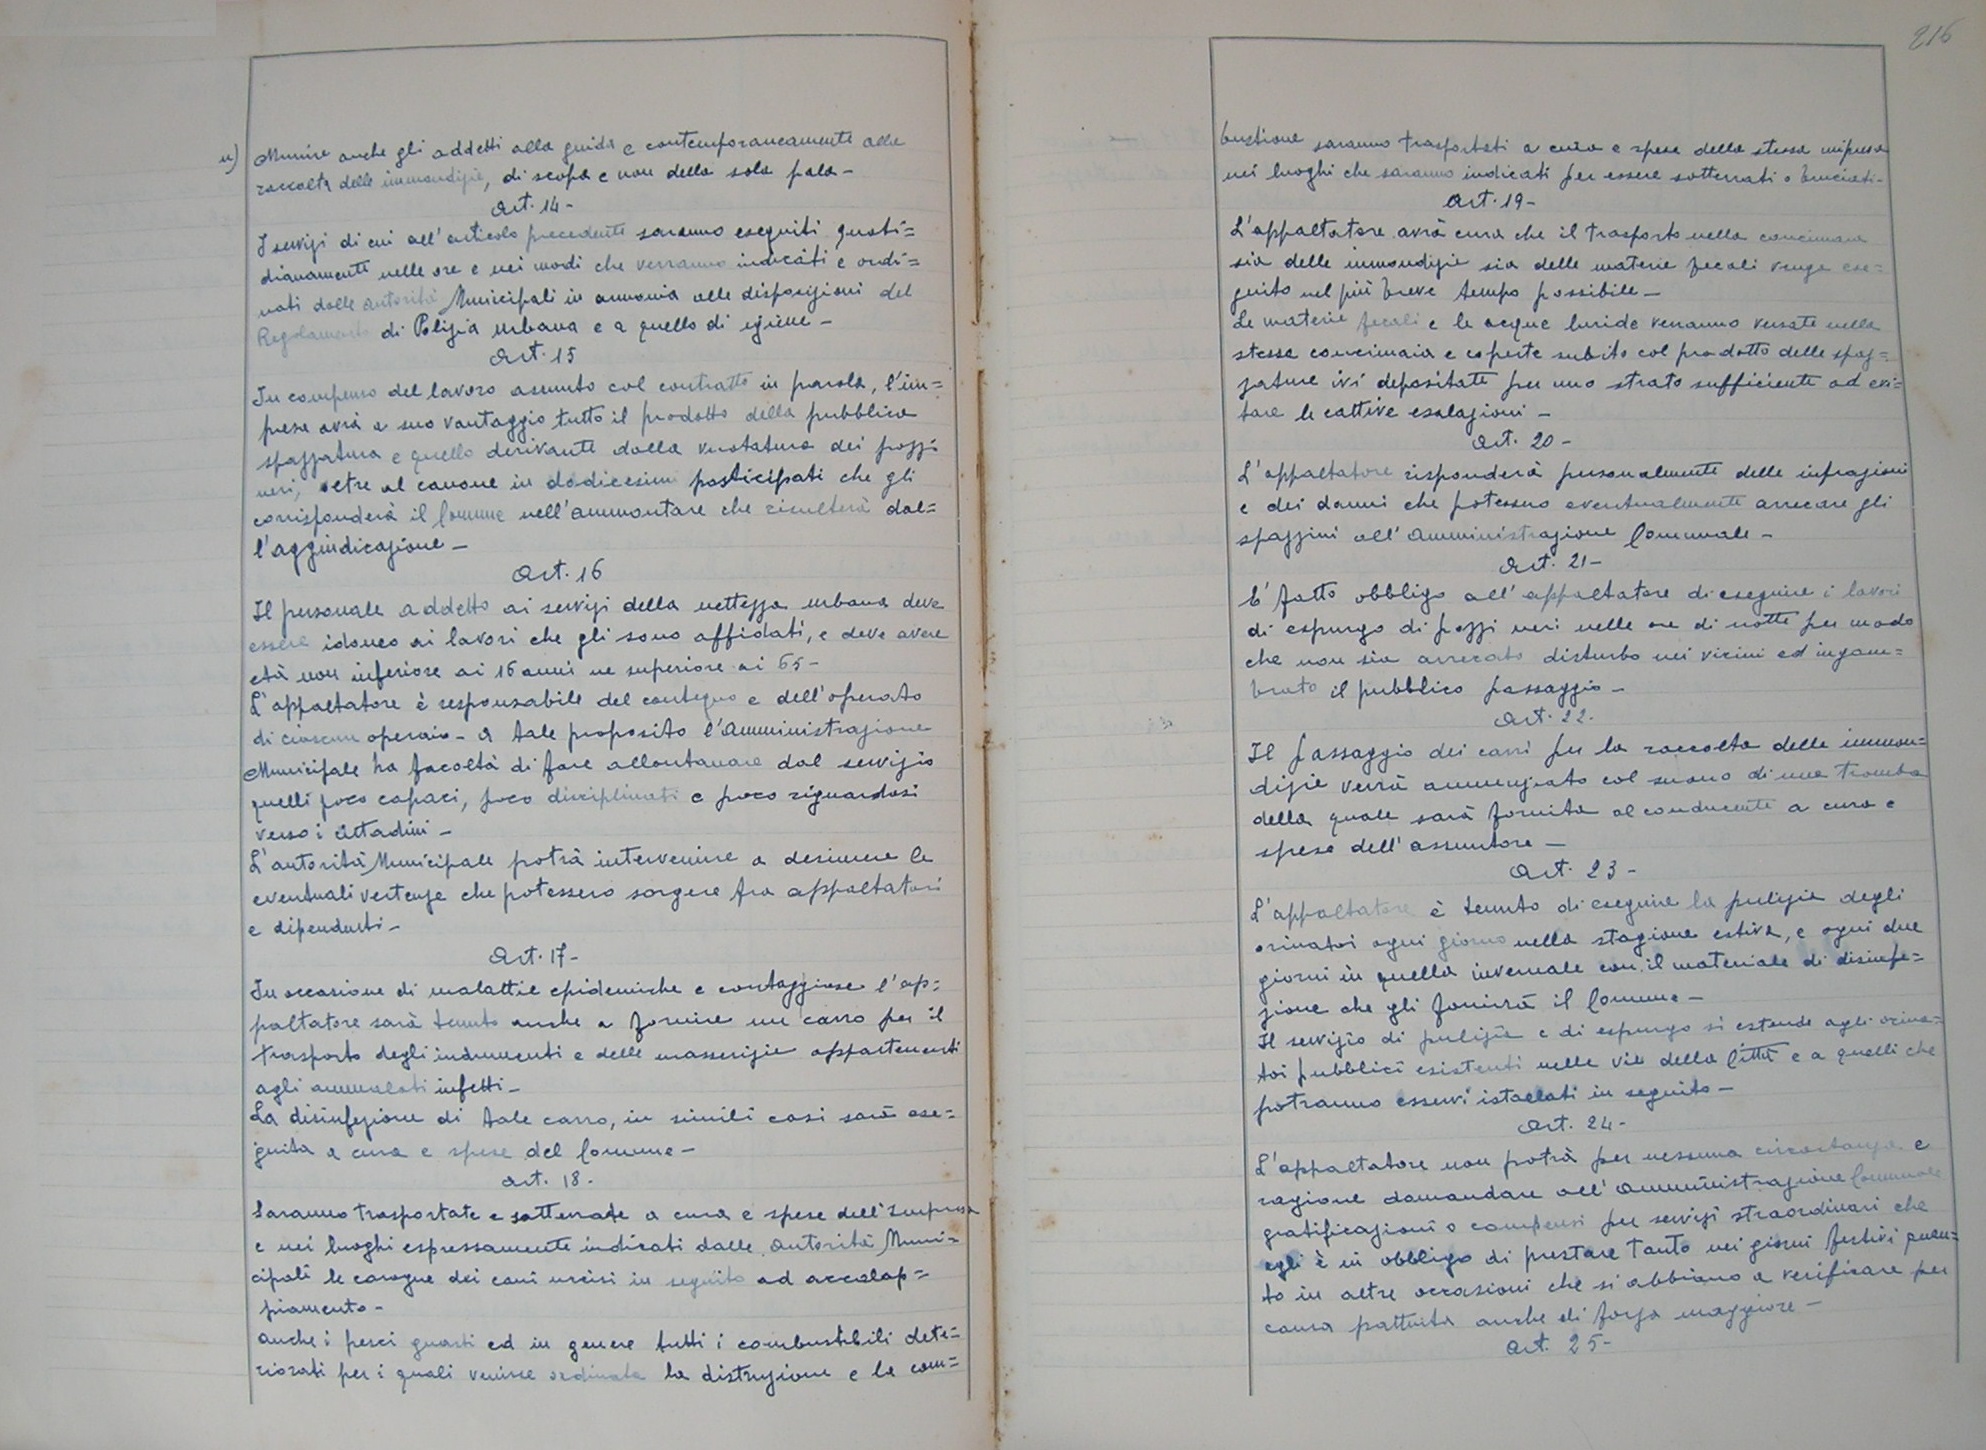 n) Munire anche gli addetti alla guida e contemporaneamente alla
raccolta delle immondizie, di scopa e non della sola pala -
Art. 14 -
I servizi di cui all'articolo precedente saranno eseguiti quoti=
dianamente nelle ore e nei modi che verranno indicati e ordi=
nati dalle autorità Municipali in armonia alle disposizioni del
Regolamento di Polizia urbana e a quello di igiene -
Art. 15
In compenso del lavoro assunto col contratto in parola, l'im=
presa avrà a suo vantaggio tutto il prodotto della pubblica
spazzatura e quello derivante dalla vuotatura dei pozzi
neri, oltre al canone in dodicesimi posticipati che gli
corrisponderà il Comune nell'ammontare che risulterà dal=
l'aggiudicazione -
Art. 16
Il personale addetto ai servizi della nettezza urbana deve
essere idoneo ai lavori che gli sono affidati, e deve avere
età non inferiore ai 16 anni ne superiore ai 65 -
L'appaltatore è responsabile del contegno e dell'operato
di ciascun operaio - A tale proposito l'Amministrazione
Municipale ha facoltà di fare allontanare dal servizio
quelli poco capaci, poco disciplinati e poco riguardosi
verso i cittadini -
L'autorità Municipale potrà intervenire a desimere le
eventuali vertenze che potessero sorgere fra appaltatori
e dipendenti -
Art. 17 -
In occasione di malattie epidemiche e contaggiose l'ap=
paltatore sarà tenuto anche a fornire un carro per il
trasporto degli indumenti e delle masserizie appartenenti
agli ammalati infetti -
La disinfezione di tale carro, in simili casi sarà ese=
guita a cura e spese del Comune -
Art. 18 -
Saranno trasportate e sotterrate a cura e spese dell'Impresa
e nei luoghi espressamente indicati dalle Autorità Muni=
cipali le carogne dei cani uccisi in seguito ad accalap=
piamento -
Anche i pesci guasti ed in genere tutti i combustibili dete=
riorati per i quali venisse ordinata la distruzione e la com=
216
bustione saranno trasportati a cura e spese della stessa impresa
nei luoghi che saranno indicati per essere sotterrati o bruciati -
Art. 19 -
L'appaltatore avrà cura che il trasporto nella concimaia
sia delle immondizie sia delle materie fecali venga ese=
guito nel più breve tempo possibile -
Le materie fecali e le acque luride verranno versate nella
stessa concimaia e coperte subito col prodotto delle spaz=
zature ivi depositate per uno strato sufficiente ad evi=
tare le cattive esalazioni -
Art. 20 -
L'appaltatore risponderà personalmente delle infrazioni
e dei danni che potessero eventualmente arrecare gli
spazzini all'Amministrazione Comunale -
Art. 21 -
E' fatto obbligo all'appaltatore di eseguire i lavori
di espurgo di pozzi neri nelle ore di notte per modo
che non sia arrecato disturbo nei vicini ed ingom=
brato il pubblico passaggio -
Art. 22 -
Il passaggio dei carri per la raccolta delle immon=
dizie verrà annunziato col suono di una tromba
della quale sarà fornita al conducente a cura e
spese dell'assuntore -
Art. 23 -
L'appaltatore è tenuto di eseguire la pulizia degli
orinatoi ogni giorno nella stagione estiva, e ogni due
giorni in quella invernale con il materiale di disinfe=
zione che gli fornirà il Comune -
Il servizio di pulizia e di espurgo si estende agli orina=
toi pubblici esistenti nelle vie della Città e a quelli che
potranno esservi istallati in seguito -
Art. 24 -
L'appaltatore non potrà per nessuna circostanza e
ragione domandare all'Amministrazione Comunale
gratificazioni o compensi per servizi straordinari che
egli è in obbligo di prestare tanto nei giorni festivi quan=
to in altre occasioni che si abbiano a verificare per
causa pattuita anche di forza maggiore -
Art. 25 -